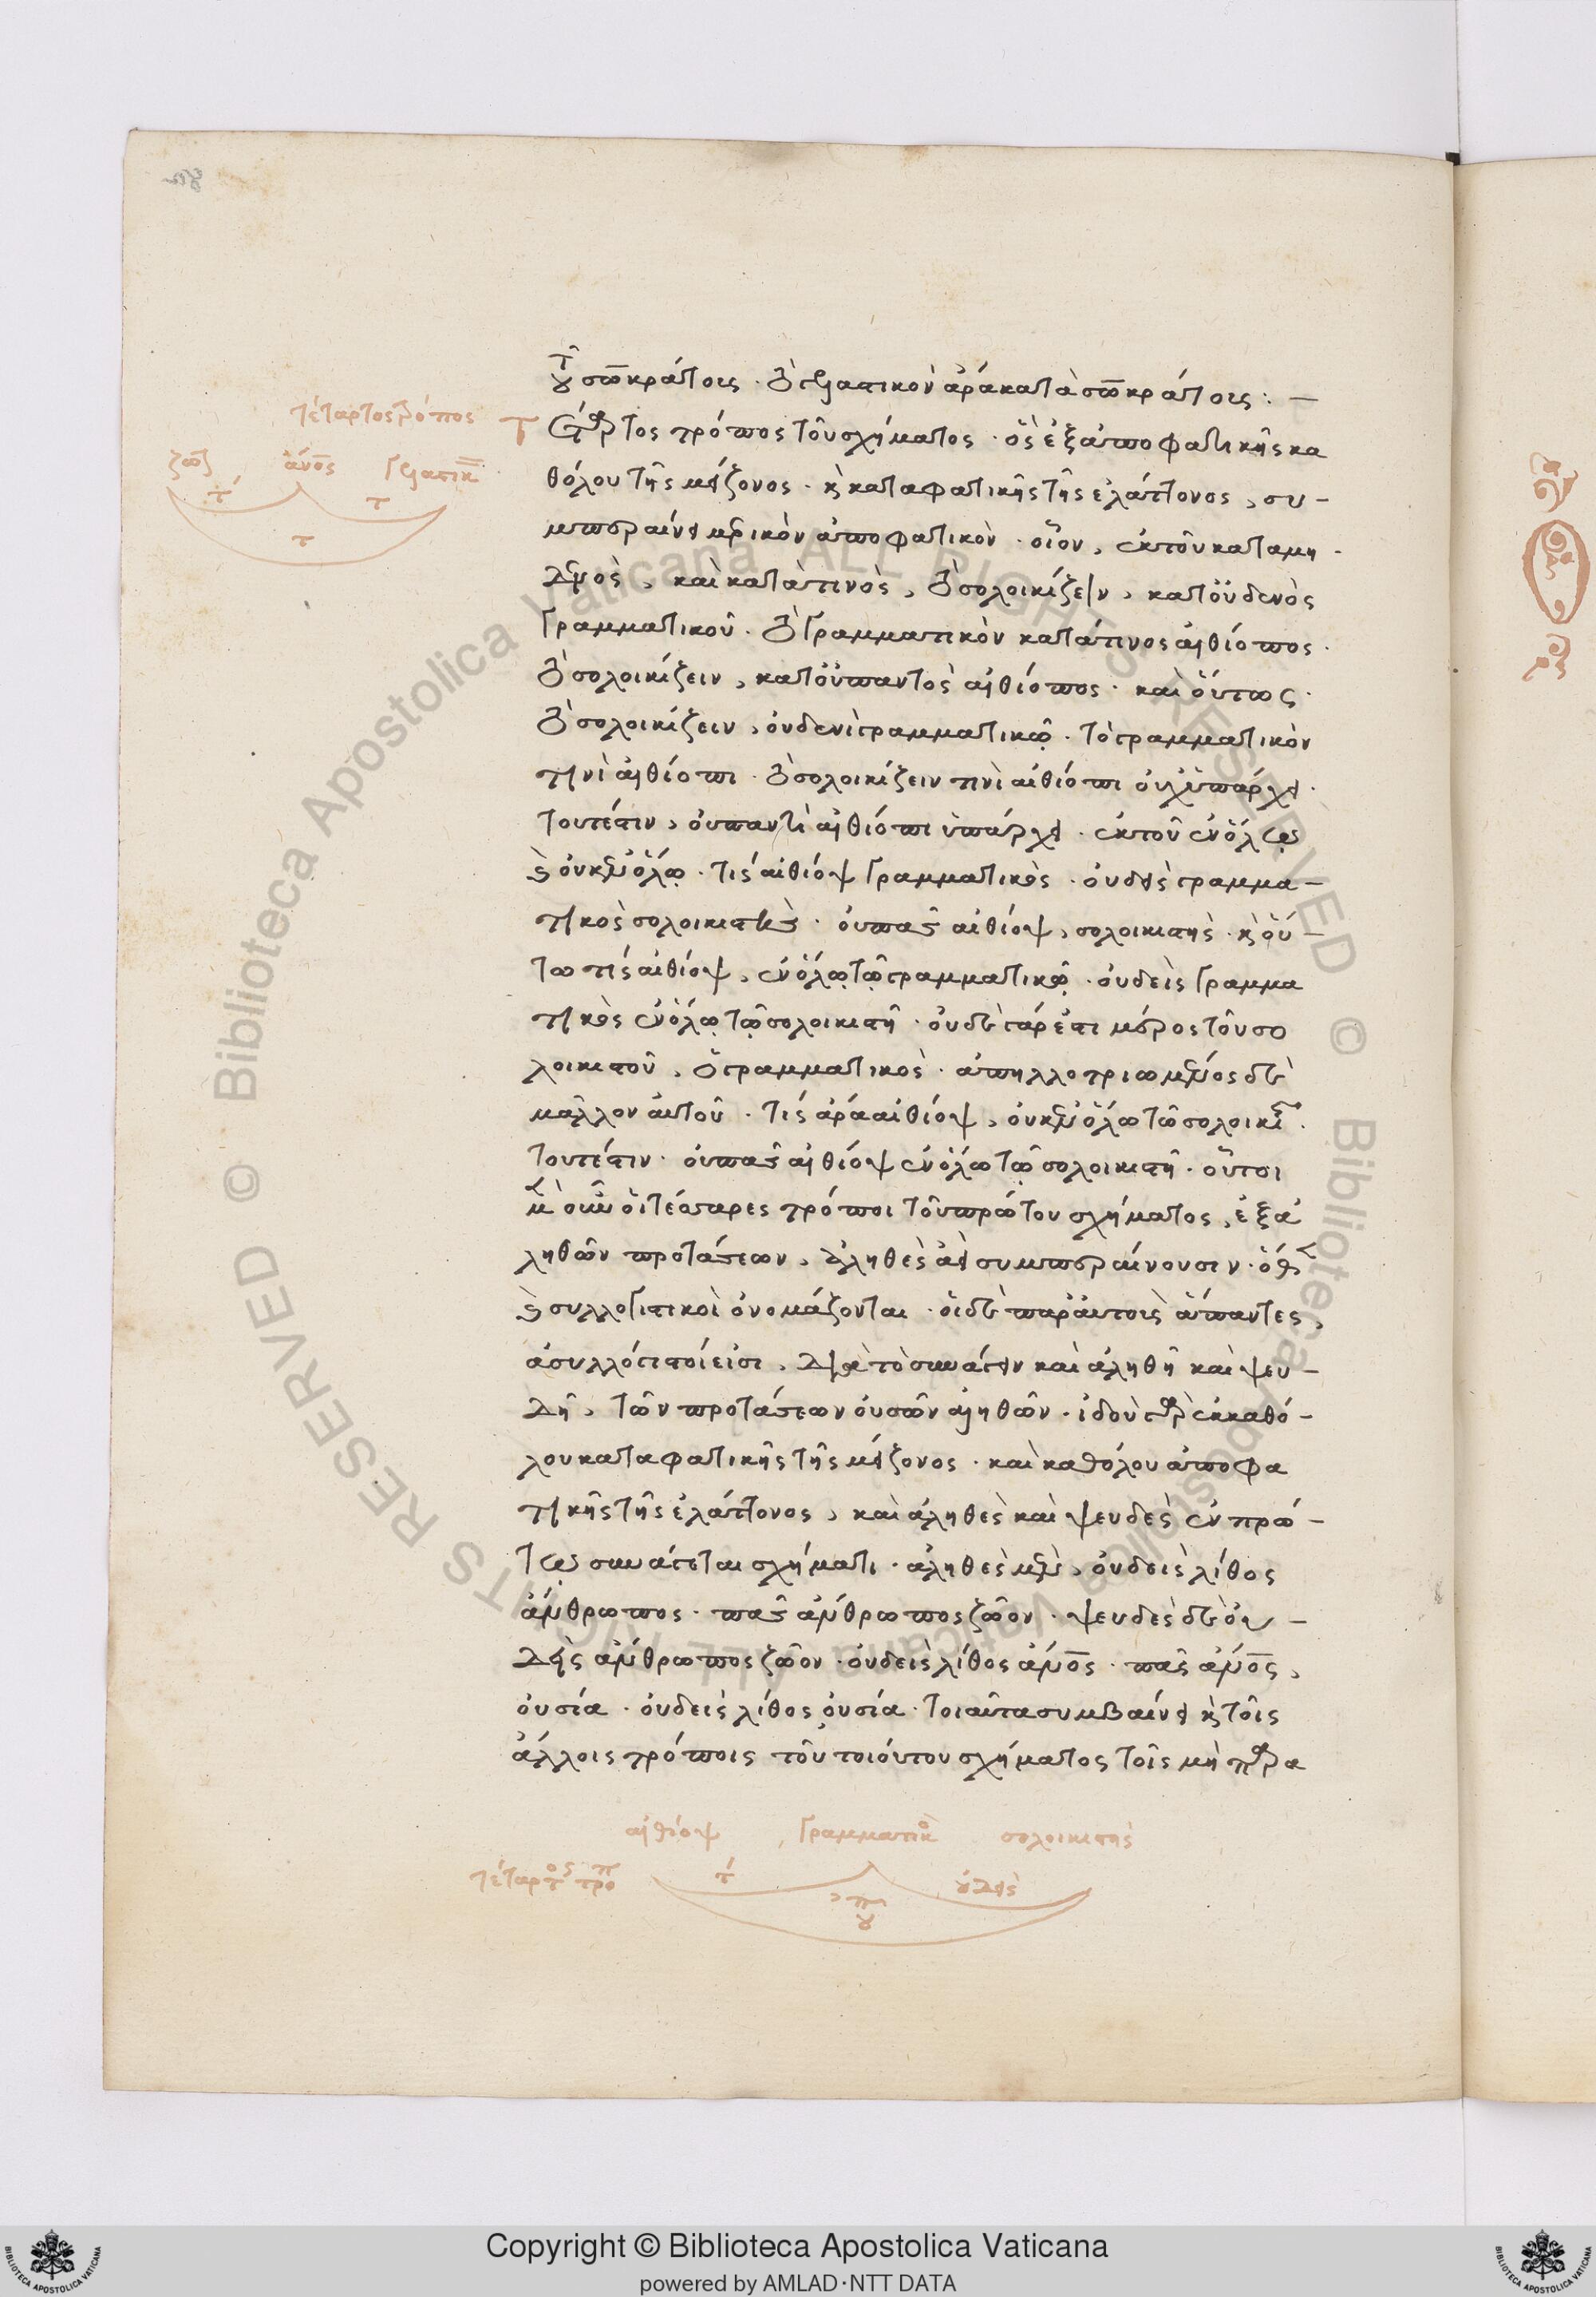 τέταρτος τρόπος
ζῶον ἄνος γελαστικὸν
τ τ
τ
τοῦ σωκράτους · τὸ γελαστικὸν ἄρα κατὰ σωκράτους : —
Τέταρτος τρόπος τοῦ σχήματος · ὃς ἐξ ἀποφατικῆς κα
θόλου τῆς μείζονος · καὶ καταφατικῆς τῆς ἐλάττονος, συ-
μπεραίνει μερικὸν ἀποφατικὸν · οἷον, ἐκ τοῦ κατὰ μη-
δενὸς, καὶ κατὰ τινὸς, τὸ σολοικίζειν, κατ' οὐδενὸς
γραμματικοῦ · τὸ γραμματικὸν κατά τινος αἰθίοπος ·
τὸ σολοικίζειν, κατ' οὐ παντὸς αἰθίοπος · καὶ οὕτως ·
τὸ σολοικίζειν, οὐδενὶ γραμματικῷ · τὸ γραμματικὸν
τινὶ αἰθίοπι · τὸ σολοικίζειν τινὶ αἰθίοπι οὐχ ὑπάρχει ·
τουτέστιν, οὐ παντὶ αἰθίοπι ὑπάρχει · ἐκ τοῦ ἐν ὅλῳ
καὶ οὐκ ἐν ὅλῳ · τὶς αἰθίοψ γραμματικὸς · οὐδεὶς γραμμα-
τικὸς σολοικιστὴς · οὐ πᾶς αἰθίοψ, σολοικιστὴς · καὶ οὕ-
τω τὶς αἰθίοψ, ἐν ὅλῳ τῷ γραμματικῷ · οὐδεὶς γραμμα
τικὸς ἐν ὅλῳ τῷ σολοικιστῆ · οὐδὲ γάρ ἐστι μέρος τοῦ σο
λοικιστοῦ, ὁ γραμματικὸς · ἀπηλλοτριωμένος δὲ
μᾶλλον αὐτοῦ · τὶς ἄρα αἰθίοψ, οὐκ ἐν ὅλω τῶ σολοικιστῆ ·
τουτέστιν · οὐ πᾶς αἰθίοψ ἐν ὅλω τῷ σολοικιστῆ · οὗτοι
μὲν οὖν οἱ τέσσαρες τρόποι τοῦ πρώτου σχήματος, ἐξ ἀ
ληθῶν προτάσεων, ἀληθὲς ἀεὶ συμπεραίνουσιν · ὅθεν
καὶ συλλογιστικοὶ ὀνομάζονται · οἱ δὲ παρ' αὐτοὺς ἅπαντες,
ἀσυλλόγιστοί εἰσι, διὰ τὸ συνάγειν καὶ ἀληθῆ καὶ ψευ-
δῆ, τῶν προτάσεων οὐσῶν ἀληθῶν · ἰδοὺ γὰρ ἐκ καθό-
λου καταφατικῆς τῆς μείζονος · καὶ καθόλου ἀποφα
τικῆς τῆς ἐλάττονος, καὶ ἀληθὲς καὶ ψευδὲς ἐν πρώ-
τῳ συνάγεται σχήματι · ἀληθὲς μὲν, οὐδεὶς λίθος
ἄνθρωπος · πᾶς ἄνθρωπος ζῶον · ψευδὲς δὲ οὐ-
δεὶς ἄνθρωπος ζῶον · οὐδεὶς λίθος ἄνος · πᾶς ἄνος,
οὐσία · οὐδεὶς λίθος οὐσία · τοιαῦτα συμβαίνει καὶ τοῖς
ἄλλοις τρόποις τοῦ τοιούτου σχήματος τοῖς μὴ παρα
αἰθίοψ γραμματικὸς σολοικιστὴς
τέταρτος τρόπος τὶ οὐδεὶς
οὐ π